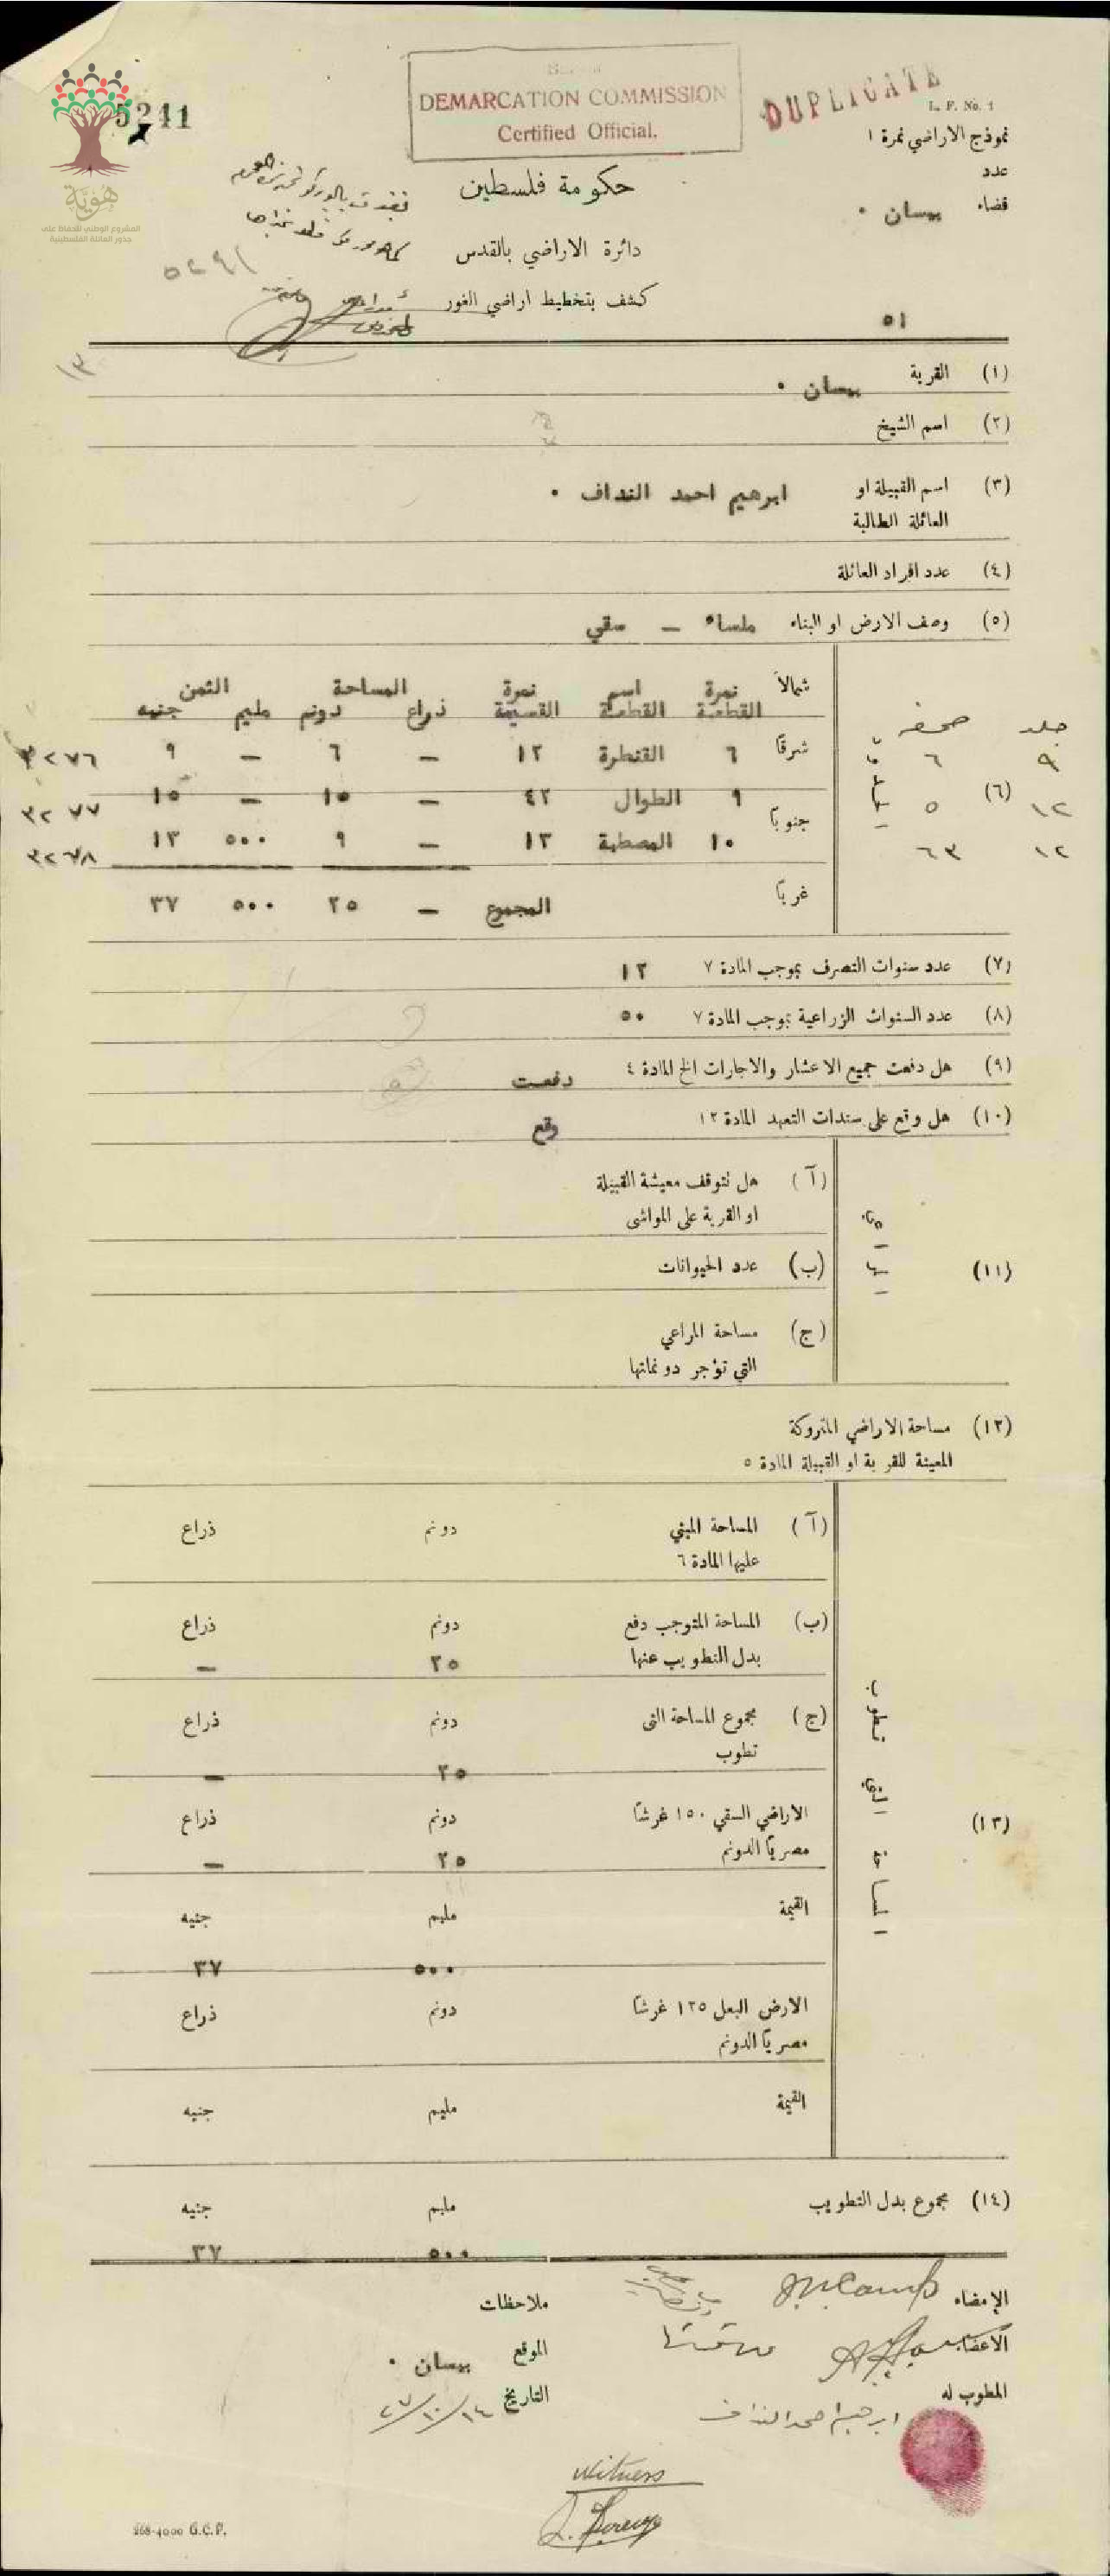 5241
هُوِيَّة
المشروع الوطني للحفاظ على
جذور العائلة الفلسطينية
DEMARCATION COMMISSION
Certified Official.
DUPLICATE
L. F. No. 1
نموذج الاراضي نمرة ١
عدد
قضاء بيسان .
حكومة فلسطين
دائرة الاراضي بالقدس
٥٢٤١
كشف بتخطيط اراضي الغور
٥١
١٣
(١) القرية بيسان .
(٢) اسم الشيخ
(٣) اسم القبيلة او ابرهيم احمد النداف .
العائلة الطالبة
(٤) عدد افراد العائلة
(٥) وصف الارض او البناء ملساء — سقي
شمالاً نمرة اسم نمرة المساحة الثمن
القطعة القطعة القسيمة ذراع دونم مليم جنيه
جلد صحفه
٩ ٦ شرقاً ٦ القنطرة ١٢ — ٦ — ٩ ٣٢٧٦
(٦)
١٢ ٥ ٩ الطوال ٤٢ — ١٠ — ١٥ ٣٢٧٧
جنوباً
١٢ ٦٣ ١٠ المصطبة ١٣ — ٩ ٥٠٠ ١٣ ٣٢٧٨
غرباً المجموع — ٢٥ ٥٠٠ ٣٧
(٧) عدد سنوات التصرف بموجب المادة ٧ ١٢
(٨) عدد السنوات الزراعية بموجب المادة ٧ ٥٠
(٩) هل دفعت جميع الاعشار والاجارات الخ المادة ٤ دفعت
(١٠) هل وقع على سندات التعهد المادة ١٢ وقع
(آ) هل تتوقف معيشة القبيلة
او القرية على المواشي
(١١) (ب) عدد الحيوانات
(ج) مساحة المراعي
التي تؤجر دونماتها
(١٢) مساحة الاراضي المتروكة
المعينة للقرية او القبيلة المادة ٥
(آ) المساحة المبني دونم ذراع
عليها المادة ٦
(ب) المساحة المتوجب دفع دونم ذراع
بدل التطويب عنها ٢٥ —
(ج) مجموع المساحة التي دونم ذراع
تطوب ٢٥ —
(١٣) الاراضي السقي ١٥٠ غرشاً دونم ذراع
مصرياً الدونم ٢٥ —
القيمة مليم جنيه
٥٠٠ ٣٧
الارض البعل ١٢٥ غرشاً دونم ذراع
مصرياً الدونم
القيمة مليم جنيه
(١٤) مجموع بدل التطويب مليم جنيه
٥٠٠ ٣٧
الإمضاء
ملاحظات
الاعضاء
الموقع بيسان .
المطوب له ابرهيم احمد النداف
التاريخ ١٤/١٠/٢٧
Witness
268-4000 G.C.P.